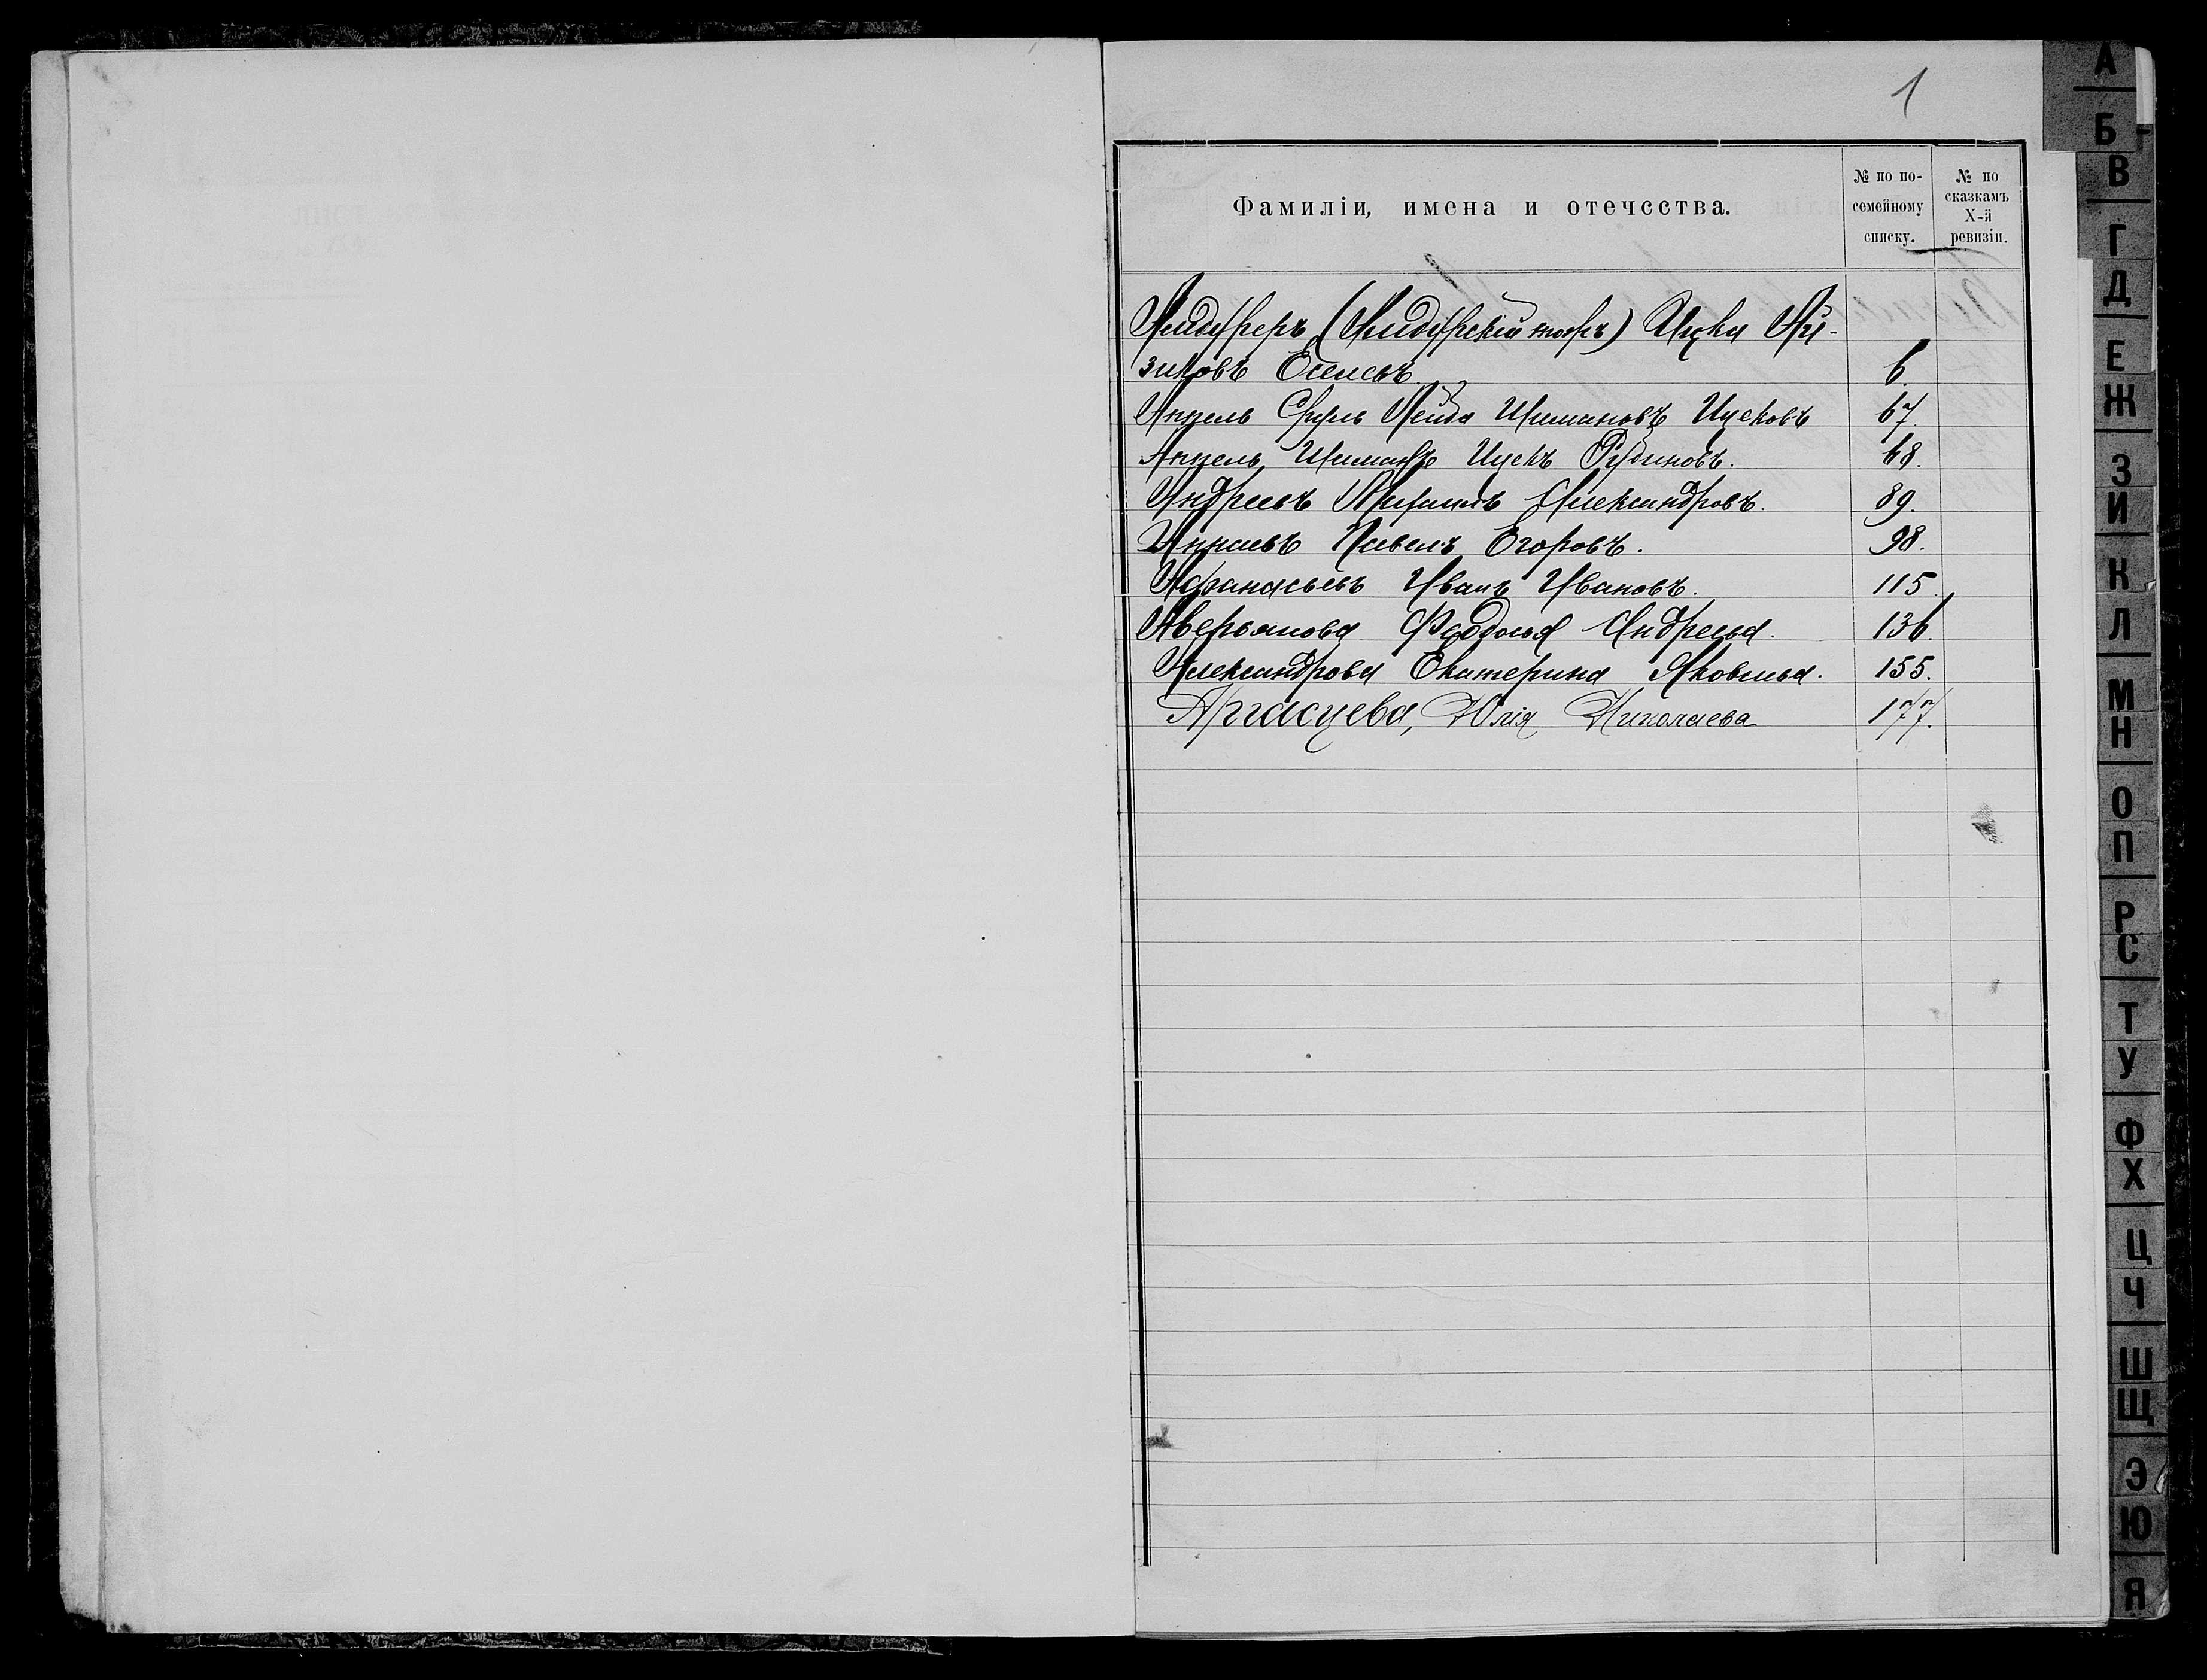 1
Фамиліи, имена и отечества.
№ по по-
семейному
списку.
№ по
сказкамъ
X-й
ревизіи.
Ицка Ай-
зиковъ 6.
Аппель Сруль Лейба Шимановъ Ицековъ 67.
Аппель Шиманъ Ицекъ Рубиновъ. 68.
Андреевъ Михаилъ Александровъ. 89.
Павелъ Егоровъ. 98.
Афанасьевъ Иванъ Ивановъ. 115.
Аверьянова Федосья Андреева. 136.
Александрова Екатерина Яковлева. 155.
Аргасцева, Юлія Николаева 177.
А
Б
В
Г
Д
Е
Ж
З
И
К
Л
М
Н
О
П
Р
С
Т
У
Ф
Х
Ц
Ч
Ш
Щ
Э
Ю
Я